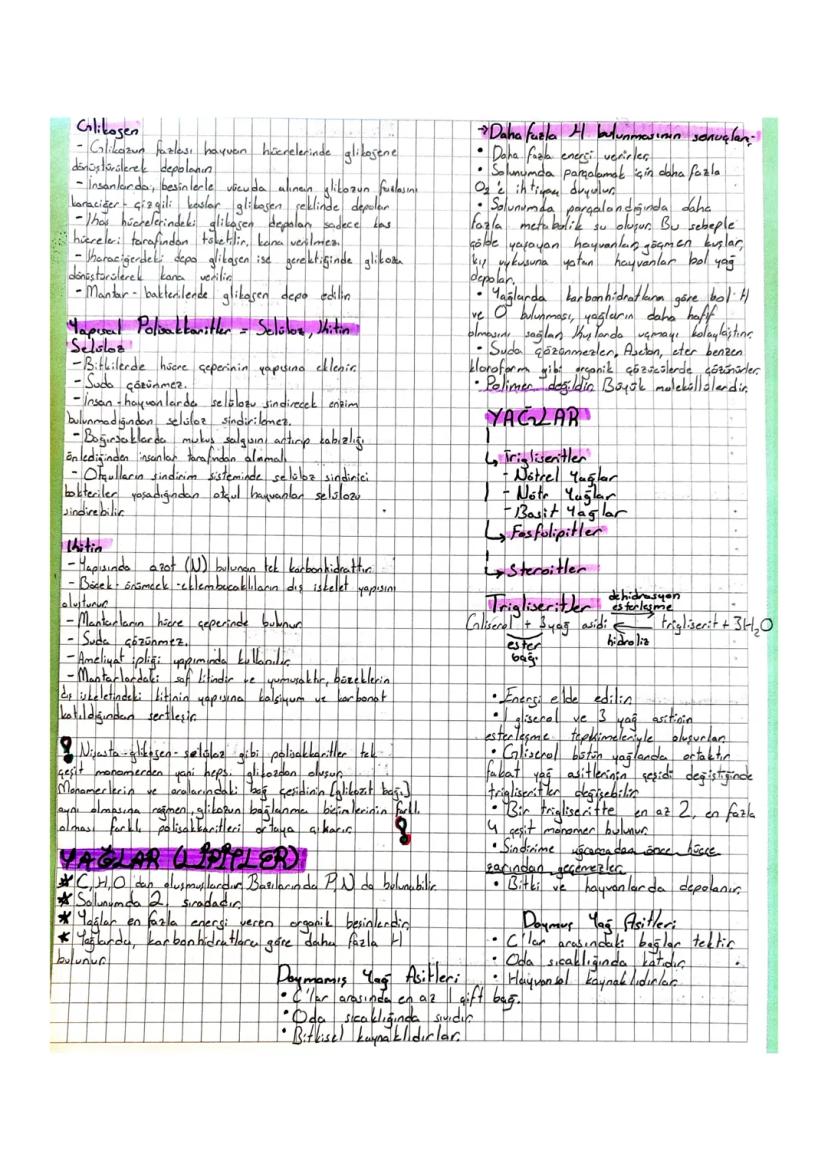 Glikojen
- Glikozun fazlası hayvan hücrelerinde glikojene
dönüştürülerek depolanır.
- İnsanlarda, besinlerle vücuda alınan glikozun fazlasını
karaciğer - çizgili kaslar glikojen şeklinde depolar
- Kas hücrelerindeki glikojen depoları sadece kas
hücreleri tarafından tüketilir, kana verilmez.
- Karaciğerdeki depo glikojen ise gerektiğinde glikoza
dönüştürülerek kana verilir.
- Mantar - bakterilerde glikojen depo edilir.
Yapısal Polisakkaritler = Selüloz, Kitin
Selüloz
- Bitkilerde hücre çeperinin yapısına eklenir.
- Suda çözünmez.
- İnsan - hayvanlarda selülozu sindirecek enzim
bulunmadığından selüloz sindirilemez.
- Bağırsaklarda mukus salgısını artırıp kabızlığı
önlediğinden insanlar tarafından alınmalı.
- Otçulların sindirim sisteminde selüloz sindirici
bakteriler yaşadığından otçul hayvanlar selülozu
sindirebilir.
Kitin
- Yapısında azot (N) bulunan tek karbonhidrattır.
- Böcek - örümcek - eklembacaklıların dış iskelet yapısını
oluşturur.
- Mantarların hücre çeperinde bulunur.
- Suda çözünmez.
- Ameliyat ipliği yapımında kullanılır.
- Mantarlardaki saf kitindir ve yumuşaktır, böceklerin
dış iskeletindeki kitinin yapısına kalsiyum ve karbonat
katıldığından sertleşir.
! Nişasta - glikojen - selüloz gibi polisakkaritler tek
çeşit monomerden yani hepsi glikozdan oluşur.
Monomerlerin ve aralarındaki bağ çeşidinin [glikozit bağı]
aynı olmasına rağmen, glikozun bağlanma biçimlerinin farklı
olması farklı polisakkaritleri ortaya çıkarır. !
YAĞLAR (LİPİTLER)
* C, H, O dan oluşmuşlardır. Bazılarında P, N da bulunabilir.
* Solunumda 2. sıradadır.
* Yağlar en fazla enerji veren organik besinlerdir.
* Yağlarda, karbonhidratlara göre daha fazla H
bulunur.
→ Daha fazla H bulunmasının sonuçları;
• Daha fazla enerji verirler.
• Solunumda parçalamak için daha fazla
O₂'e ihtiyaç duyulur.
• Solunumda parçalandığında daha
fazla metabolik su oluşur. Bu sebeple
çölde yaşayan hayvanlar, göçmen kuşlar,
kış uykusuna yatan hayvanlar bol yağ
depolar.
• Yağlarda karbonhidratlara göre bol H
ve O bulunması, yağların daha hafif
olmasını sağlar. Kuşlarda uçmayı kolaylaştırır.
• Suda çözünmezler. Aseton, eter benzen
kloroform gibi organik çözücülerde çözünürler.
• Polimer değildir. Büyük moleküllülerdir.
YAĞLAR
↳ Trigliseritler
- Nötrel Yağlar
- Nötr Yağlar
- Basit Yağlar
↳ Fosfolipitler
↳ Steroitler
Trigliseritler
dehidrasyon
esterleşme
Gliserol + 3 yağ asidi ⇌ trigliserit + 3H₂O
ester
bağı
hidroliz
• Enerji elde edilir.
• 1 gliserol ve 3 yağ asitinin
esterleşme tepkimeleriyle oluşurlar.
• Gliserol bütün yağlarda ortaktır
fakat yağ asitlerinin çeşidi değiştiğinde
trigliseritler değişebilir.
• Bir trigliseritte en az 2, en fazla
4 çeşit monomer bulunur.
• Sindirime uğramadan önce hücre
zarından geçemezler.
• Bitki ve hayvanlarda depolanır.
Doymuş Yağ Asitleri
• C'lar arasındaki bağlar tektir.
• Oda sıcaklığında katıdır.
• Hayvansal kaynaklıdırlar.
Doymamış Yağ Asitleri
• C'lar arasında en az 1 çift bağ.
• Oda sıcaklığında sıvıdır.
• Bitkisel kaynaklıdırlar.